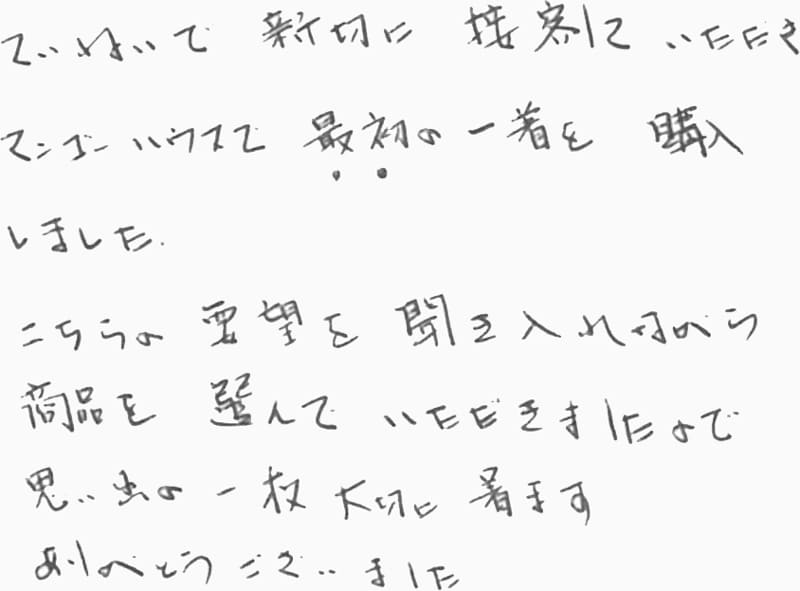 ていねいで 新切に 接客して いただき
マンゴーハウスで 最初の 一着を 購入
しました.
こちらの 要望を 聞き入れながら
商品を 選んで いただきましたので
思い出の 一枚 大切に 着ます
ありがとうございました